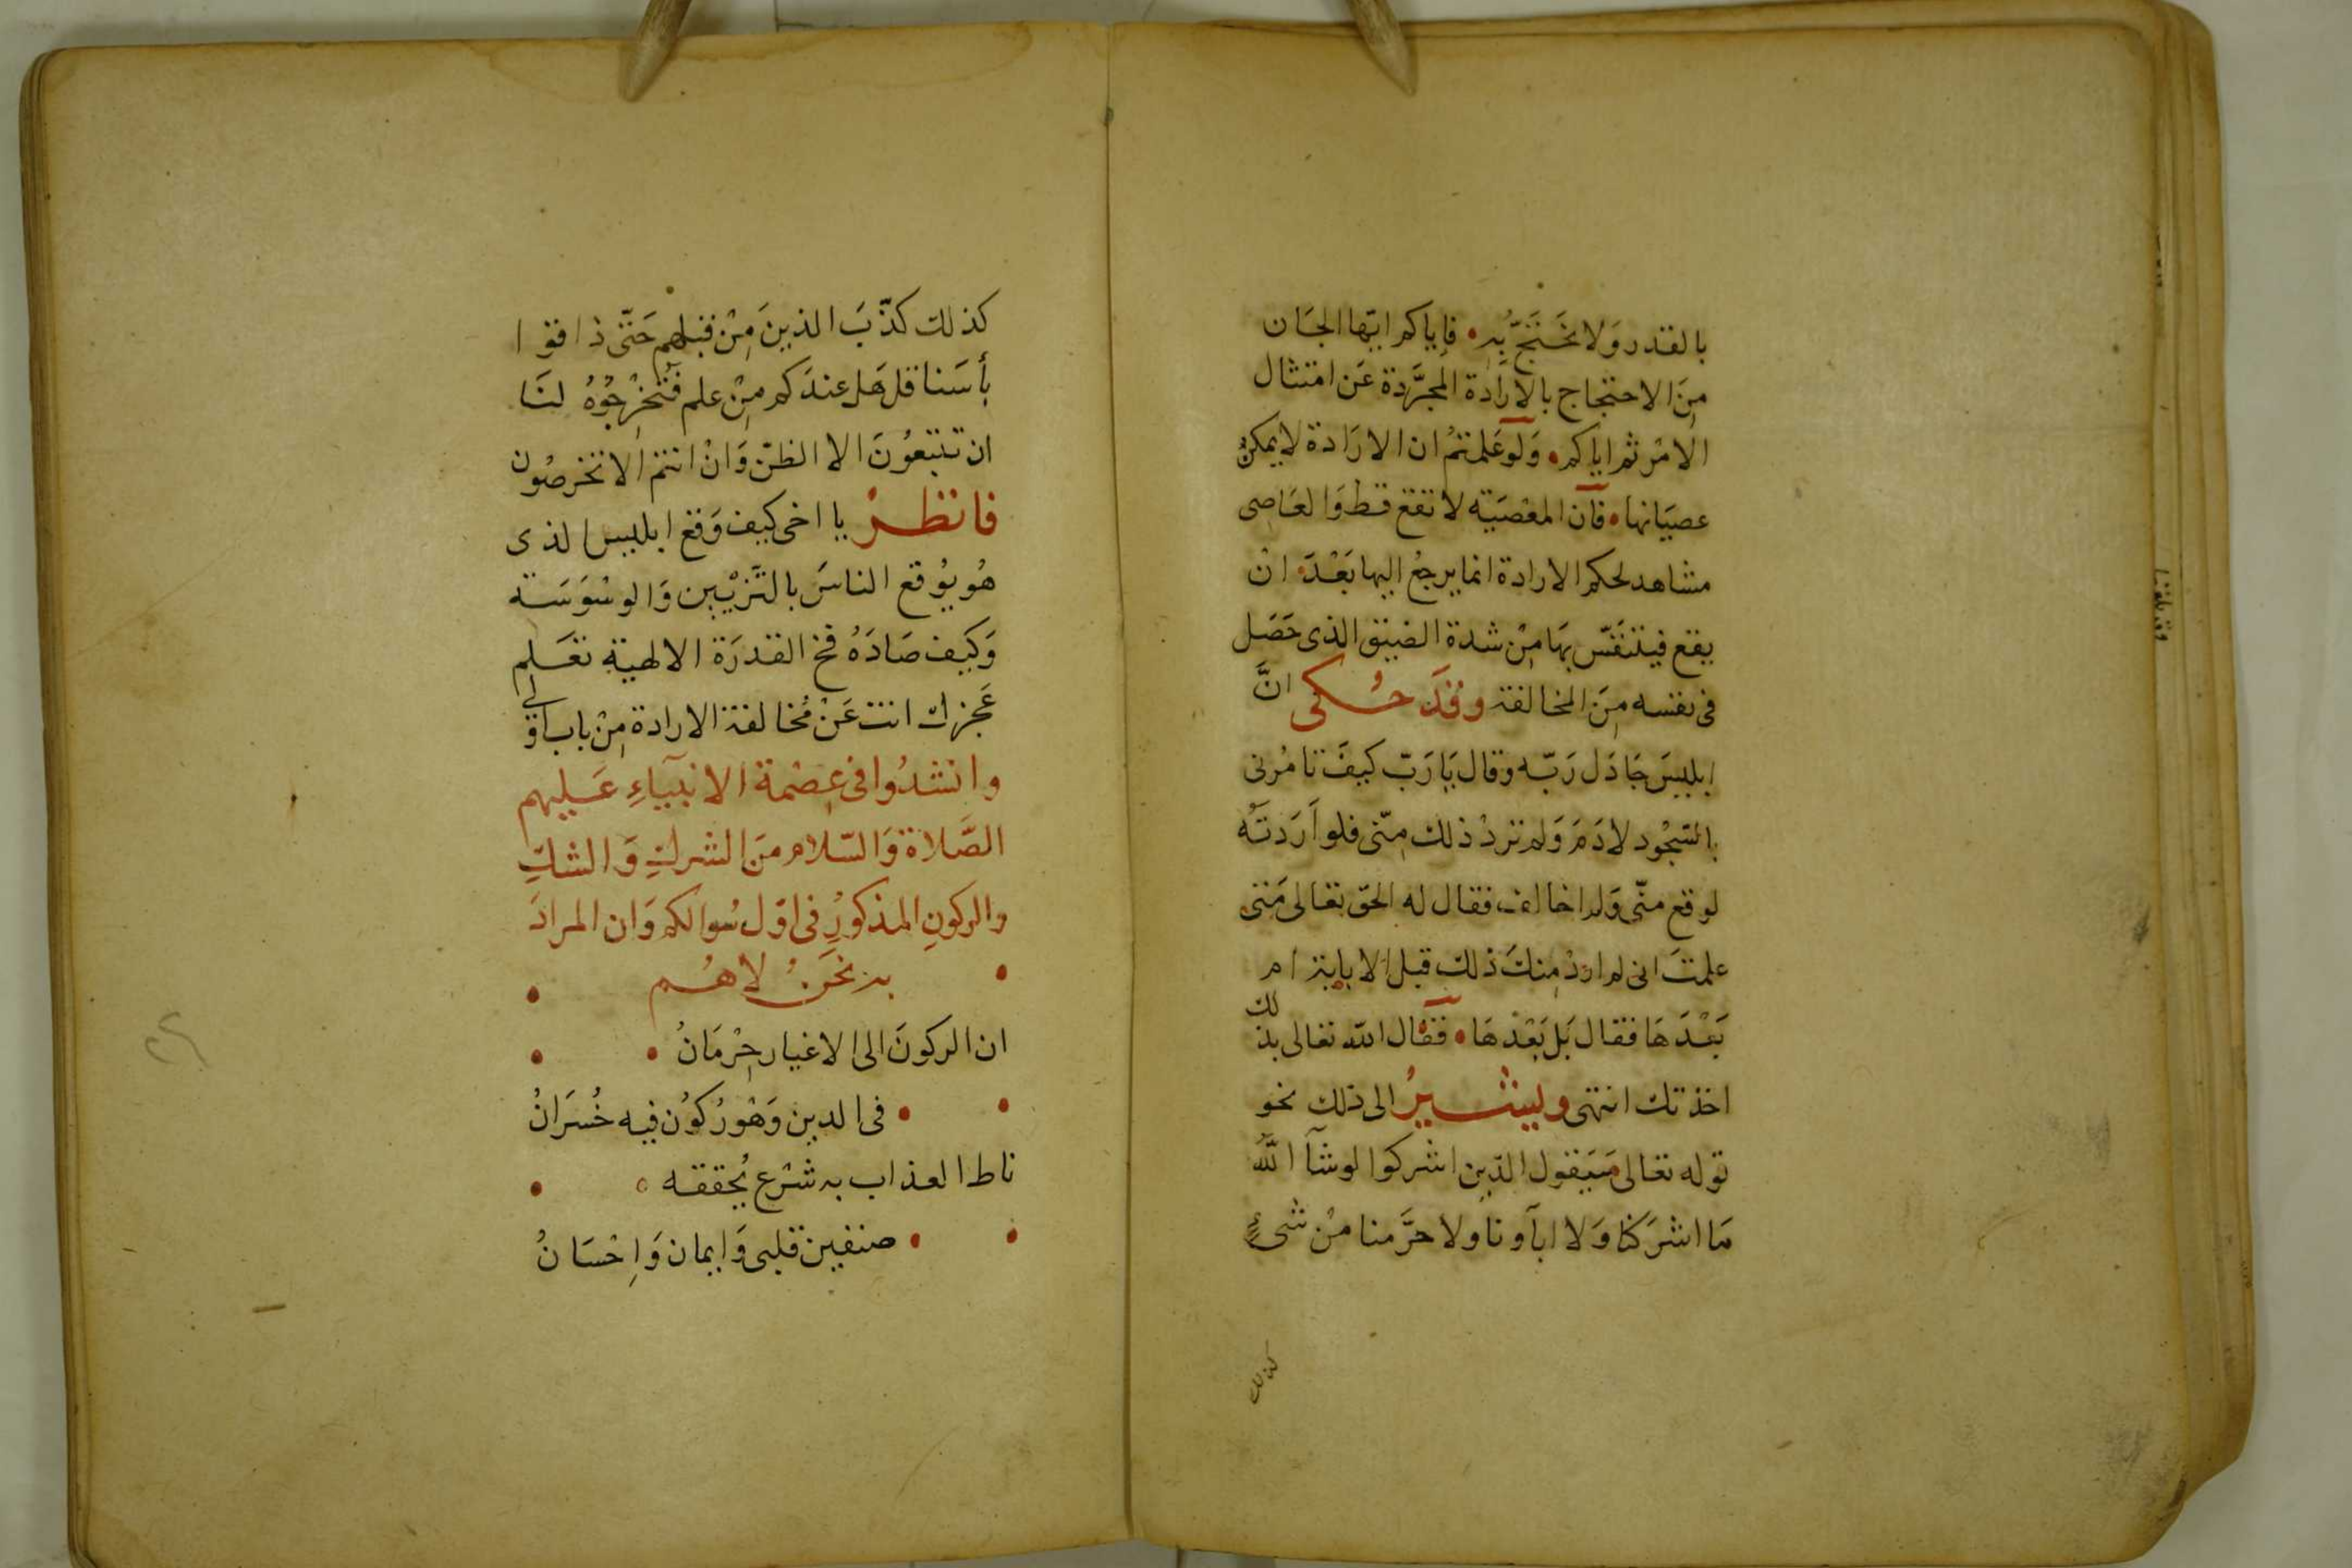 بالقدر وَلا نَحْتَجُّ بِهِ • فإياكم ايّها الجَان
مِنَ الاحتجاج بالارَادة المجرَّدة عَن امتثال
الامْر ثم اياكم • وَلَو عَلمتمُ ان الارَادة لا يمكنُ
عصيَانها • فآن المعْصَيَة لا تقع قط وَالعَاصِى
مشاهد لحكم الارادة انما يرجعُ اليها بَعْدَ • انْ
يقع فيتنَفّس بهَا مِنْ شدة الضيق الذى حَصَل
فى نفسه مِنَ المخالفة وقَد حُكى انَّ
ابليسَ جَادَل رَبّه وقال يَا رَبّ كيفَ تامُرنى
بالسّجُود لادَمَ وَلم تردْ ذلك مِنّى فلو اَرَدتَهُ
لوقع منّى وَلم اخالف فقال له الحق تعالى مَتى
علمتَ انى لم اردْ مِنكَ ذلك قبل الاباية ام
بَعْدَهَا فقال بَل بَعْدهَا • فقال الله تعالى بذلك
اخذتك انتهى ويشيرُ الى ذلك نحو
قوله تعالى سَيَقول الذين اشركوا لو شآ اللّٰهُ
مَا اشرَكنا وَلا ابآونا ولا حرَّمنا مِنْ شىءٍ
كذلك
كذلك كذّبَ الذينَ مِنْ قبلهم حَتّى ذاقوا
بأسَنا قل هَل عندَكم مِنْ علم فَتخْرِجُوْهُ لنَا
ان تتبعُونَ الا الظنّ وَانْ انتم الا تخرصُون
فانظرْ يا اخى كيف وَقع ابليس الذى
هُو يُوقع الناسَ بالتَزْيين وَالوسْوَسَة
وَكيف صَادَهُ فخ القدرَة الالهية تعَلم
عَجزك انت عَنْ مُخالفة الارادة مِنْ باب اولى
وانشدُوا فى عِصْمة الانبيَآءِ عَليهم
الصَّلاة وَالسّلام منَ الشركِ وَالشكِّ
والركونِ المذكورُ فى اوّل سُوالكم وَان المرادَ
• به نحَنُ لاهُم •
ان الركونَ الى الاغيار حِرْمَانُ • •
• • فى الدين وَهْو رُكوُن فيه خُسَرَانُ
ناط العذاب به شرْع يُحققه • •
• • صنفين قلبى وَايمان وَاِحْسَانُ